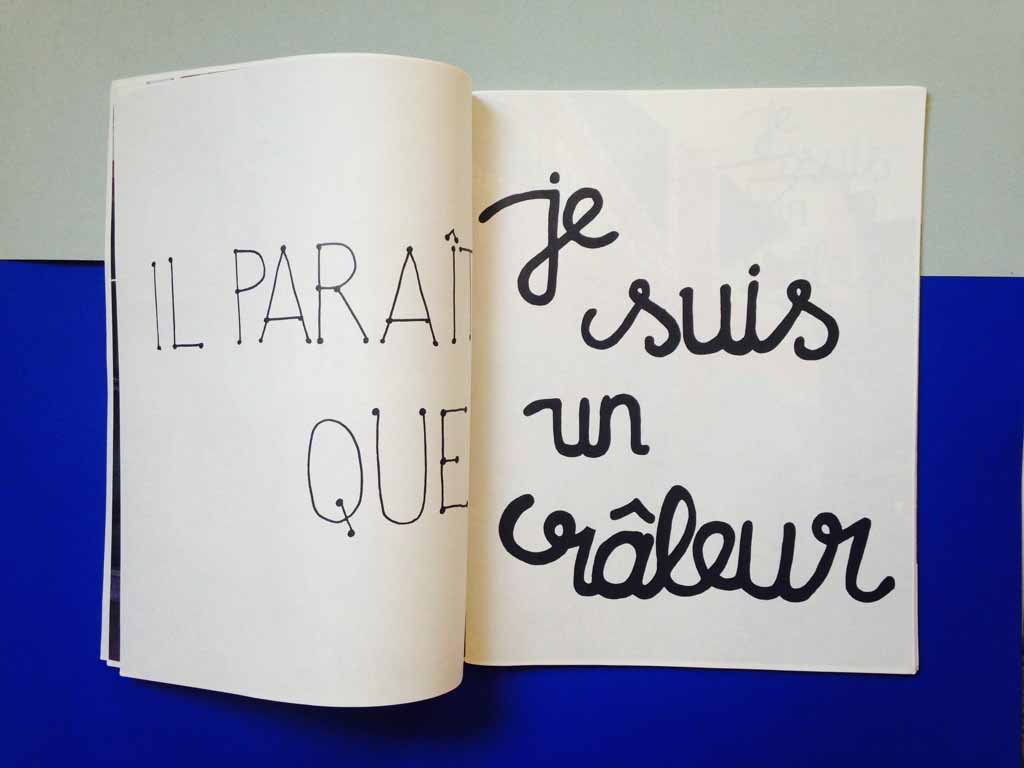 IL PARAÎT
QUE
je
suis
un
râleur